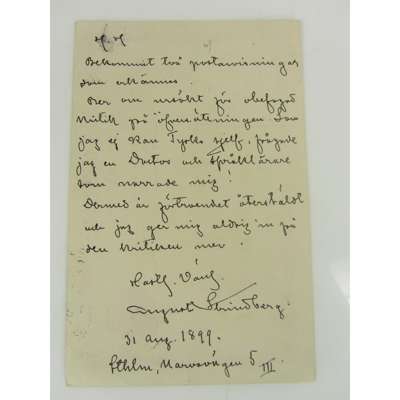 H. H.
Bekommit två postanvisningar
som erkännes.
Ber om mycket för obefogad
kritik på öfversättningen. Som
jag ej kan Tyska sjelf, frågade
jag en Doctor och Språklärare
som narrade mig!
Dermed är förtroendet återstäldt
och jag ger mig aldrig in på
den kritiken mer!
Hastl. Vänl.
August Strindberg.
31 Aug. 1899.
Sthlm, Narvavägen 5 III.